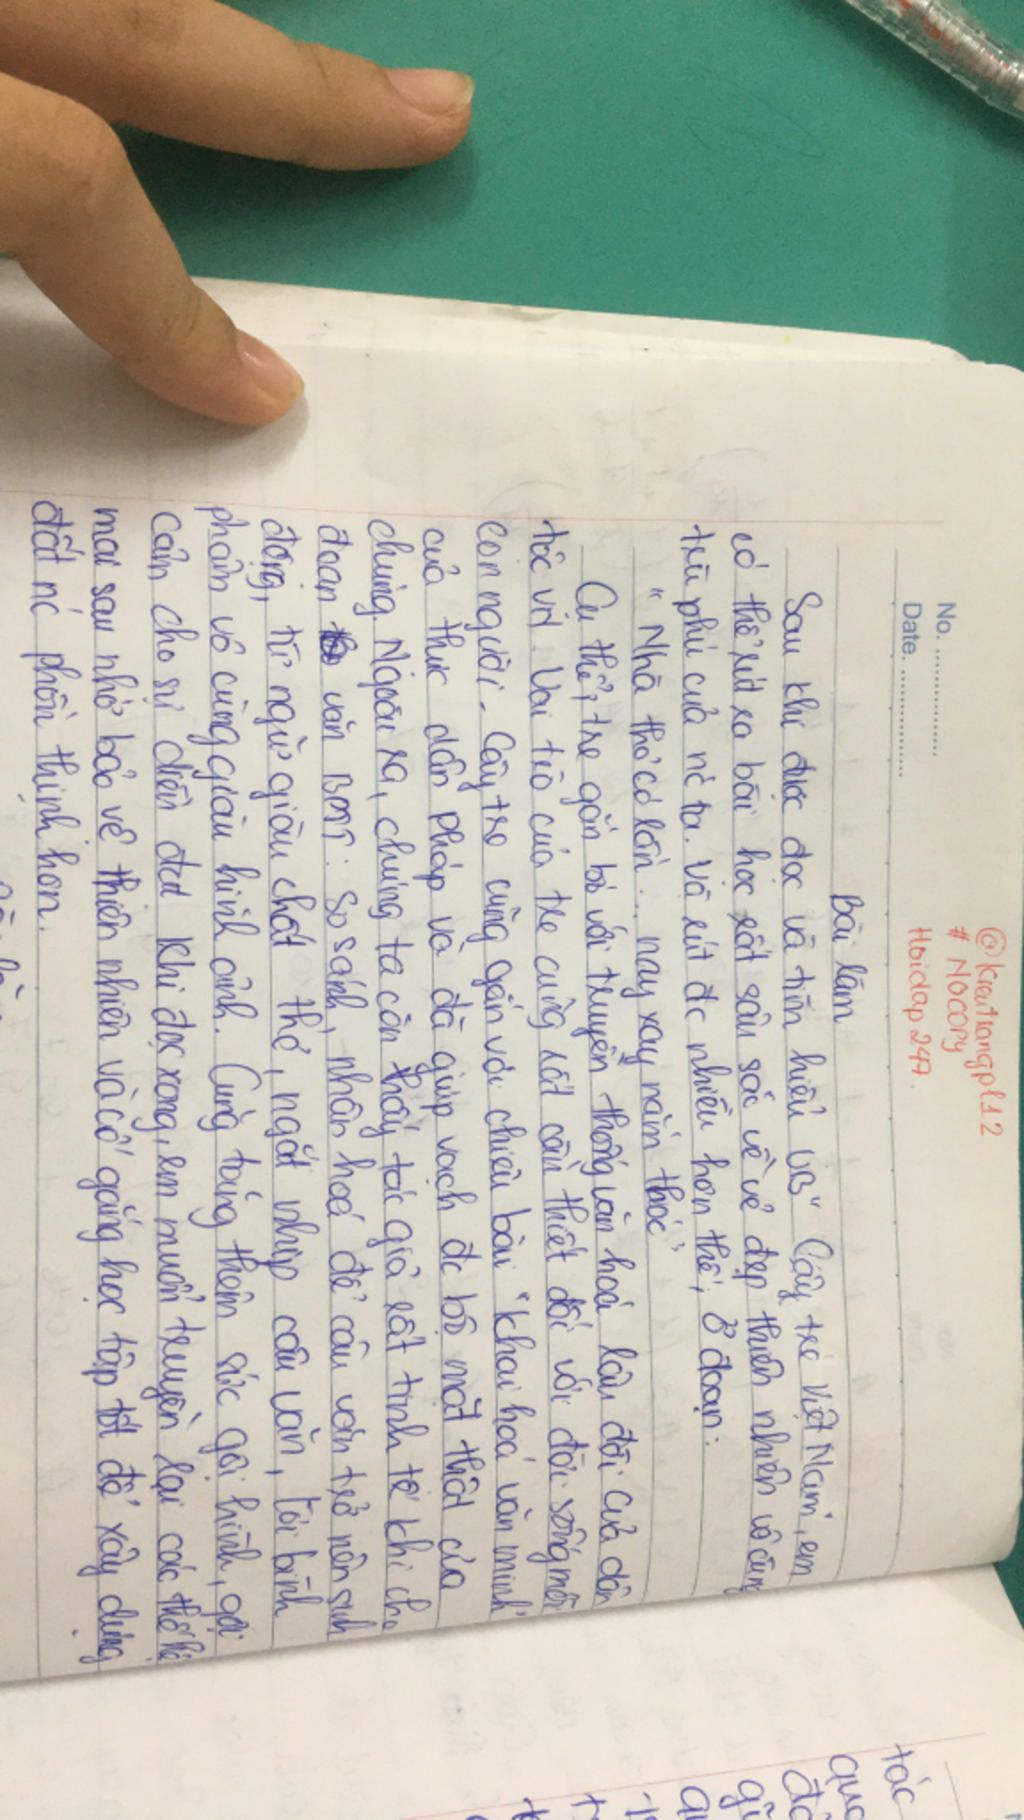 No. ..................
Date. ..................
@kieutrangpl12
# NOCOPY
Hoidap 247.
Bài làm
Sau khi được đọc và tìm hiểu VB " Cây tre Việt Nam", em
có thể rút ra bài học rất sâu sắc về vẻ đẹp thiên nhiên vô cùng
trù phú của nc ta. Và rút đc nhiều hơn thế, ở đoạn:
" Nhà thờ cổ kính... nay xay nắm thóc"
Cụ thể, tre gắn bó với truyền thống văn hoá lâu đời của dân
tộc VN. Vai trò của tre cũng rất cần thiết đối với đời sống mỗi
con người. Cây tre cũng gắn với chiêu bài "khai hoá văn minh"
của thực dân Pháp và đã giúp vạch đc bộ mặt thật của
chúng. Ngoài ra, chúng ta còn thấy tác giả rất tinh tế khi cho
đoạn văn BPTT: So sánh, nhân hoá để câu văn trở nên sinh
động, từ ngữ giàu chất thơ, ngắt nhịp câu văn, lời bình
phẩm vô cùng giàu hình ảnh. Cũng tăng thêm sức gợi hình, gợi
cảm cho sự diễn đạt. Khi đọc xong, em muốn truyền lại các thế hệ
mai sau nhớ bảo vệ thiên nhiên và cố gắng học tập tốt để xây dựng
đất nc phồn thịnh hơn.
tác